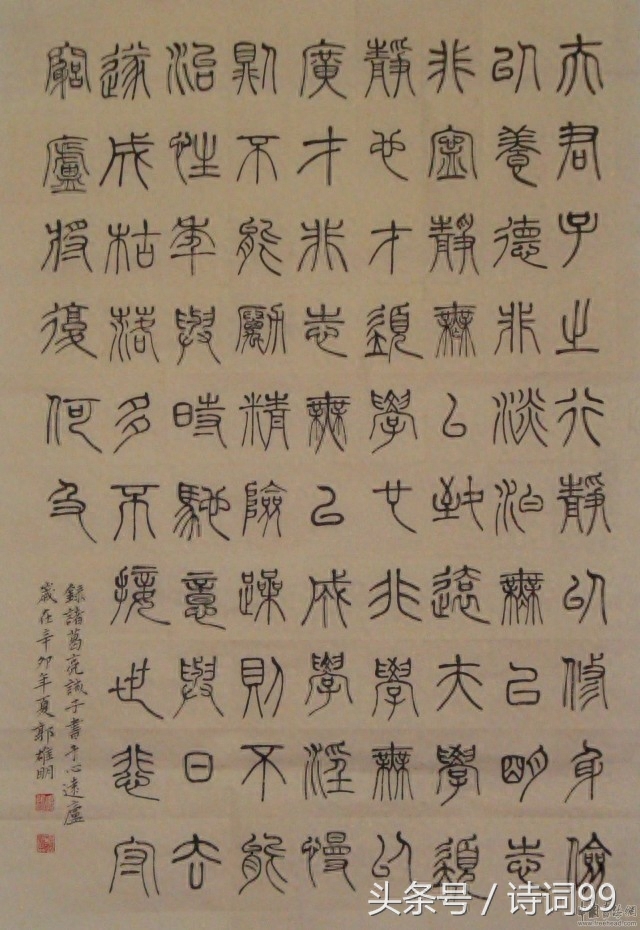 夫君子之行靜以修身儉
以養德非淡泊無以明志
非寧靜無以致遠夫學須
靜也才須學也非學無以
廣才非志無以成學淫慢
則不能勵精險躁則不能
治性年與時馳意與日去
遂成枯落多不接世悲守
窮廬將復何及
錄諸葛亮誡子書于心遠廬
歲在辛卯年夏郭雄明
头条号 / 诗词99